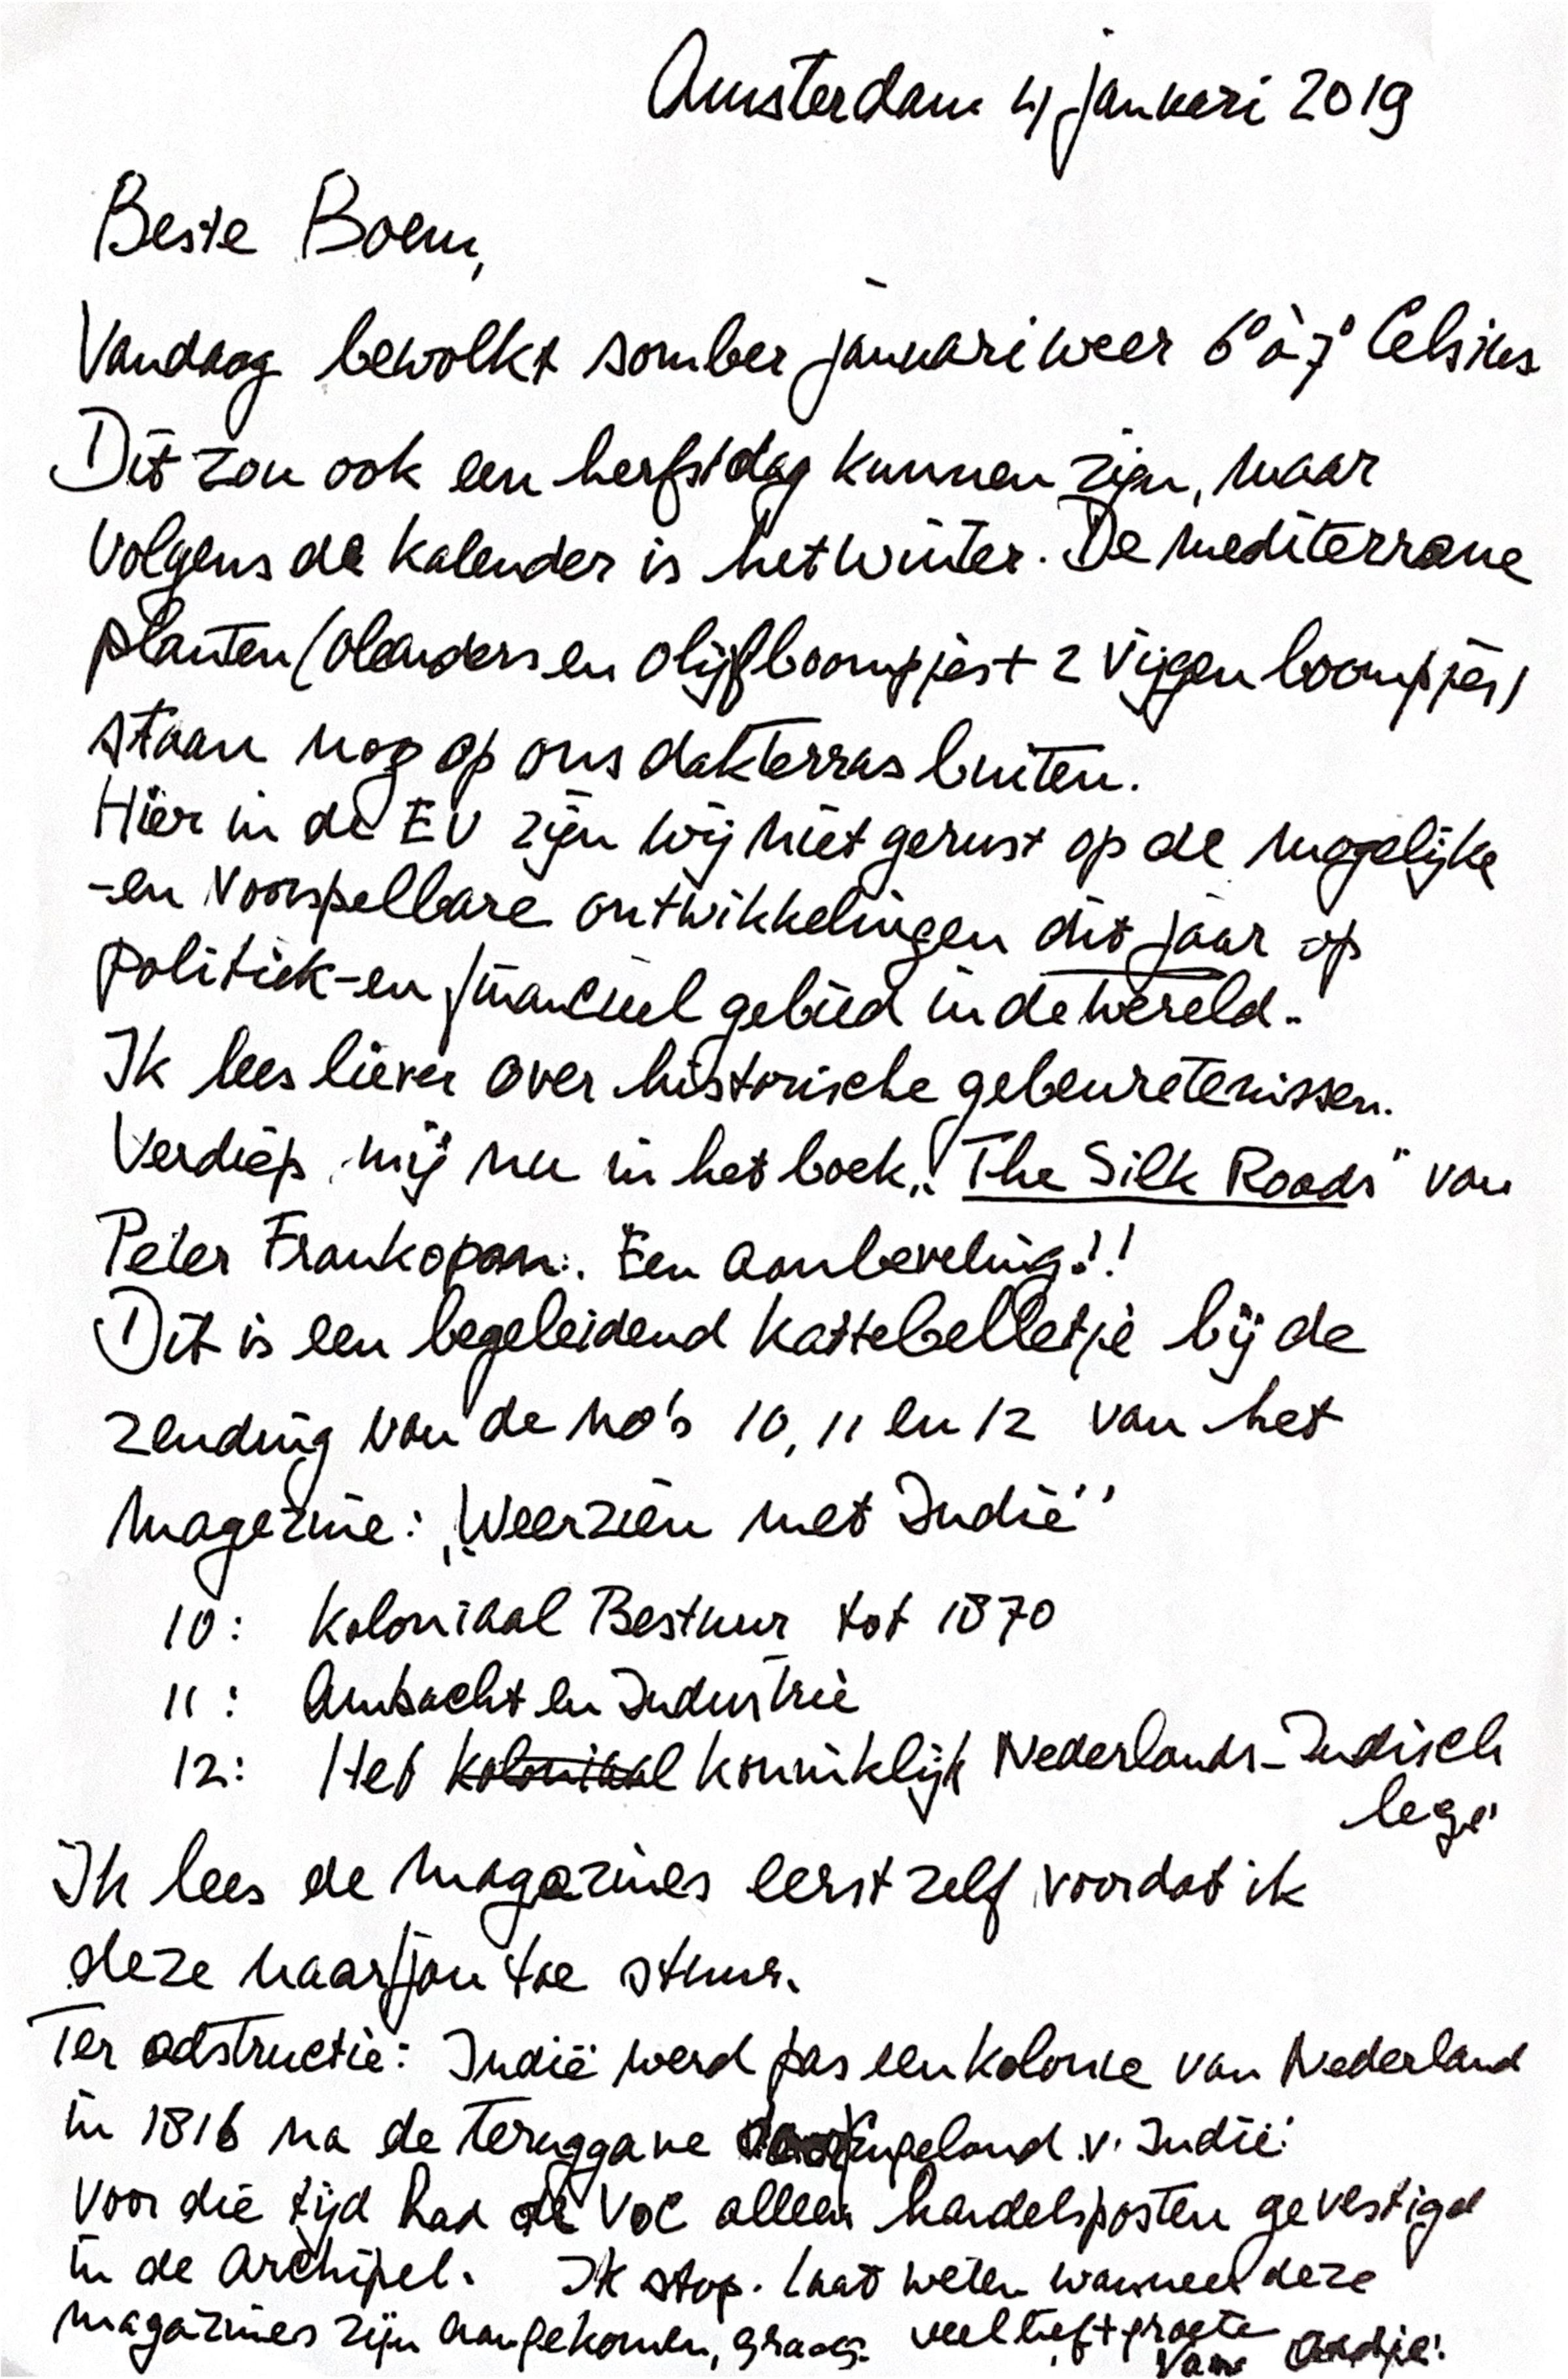 Amsterdam 4 januari 2019
Beste Boem,
Vandaag bewolkt somber januari weer 6° à 7° Celsius
Dit zou ook een herfstdag kunnen zijn, maar
volgens de kalender is het winter. De mediterrane
planten (oleanders en olijfboompjes + 2 vijgenboompjes)
staan nog op ons dakterras buiten.
Hier in de EU zijn wij niet gerust op de mogelijke
-en voorspelbare ontwikkelingen dit jaar op
politiek-en financieel gebied in de wereld.
Ik lees liever over historische gebeuretenissen.
Verdiep mij nu in het boek „The Silk Roads" van
Peter Frankopan. Een aanbeveling!!
Dit is een begeleidend kattebelletje bij de
zending van de no's 10, 11 en 12 van het
magazine: „Weerzien met Indië"
10: Koloniaal Bestuur tot 1870
11: Ambacht en Industrie
12: Het koloniaal koninklijk Nederlands-Indisch
leger
Ik lees de magazines eerst zelf voordat ik
deze naar jou toe stuur.
Ter adstructie: Indië werd pas een kolonie van Nederland
in 1816 na de teruggave door Engeland v. Indië.
Voor die tijd had de VOC alleen handelsposten gevestigd
in de archipel. Ik stop. Laat weten wanneer deze
magazines zijn aangekomen, graag. veel liefs + groete
van